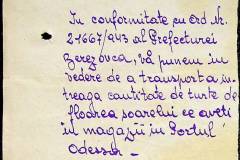 In conformitate cu Ord. Nr.
21667/943 al Prefecturei
Berezovca, vă punem în
vedere de a transporta în-
treaga cantitate de turte de
floarea soarelui ce aveți
în magazii în Portul
Odessa. -